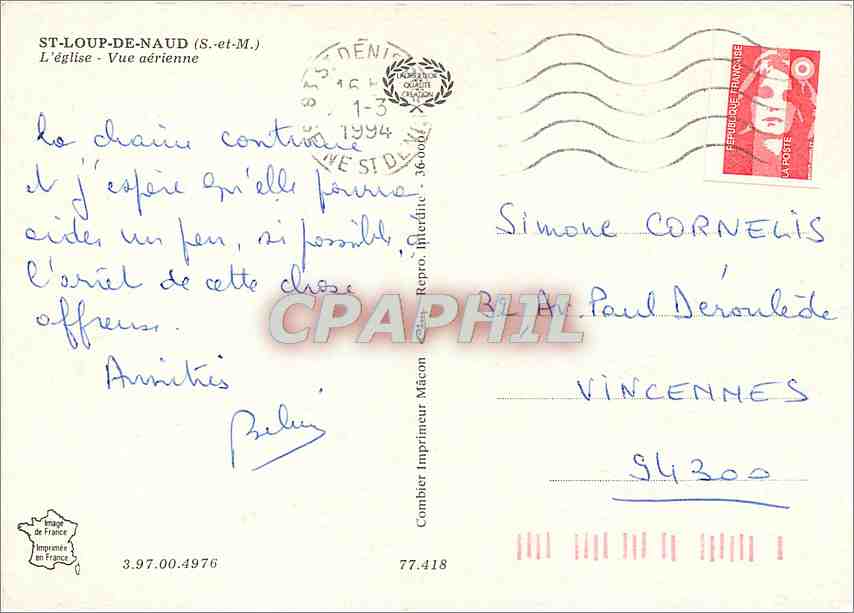 ST-LOUP-DE-NAUD (S.-et-M.)
L'église - Vue aérienne
ST DENIS
1-3
1994
LAURÉAT
QUALITÉ
CRÉATION
RÉPUBLIQUE FRANÇAISE
LA POSTE
La chaîne continue
et j'espère qu'elle pourra
aider un peu, si possible, à
l'arrêt de cette chose
affreuse.
Amitiés
Simone CORNELIS
32, Av. Paul Déroulède
VINCENNES
94300
CPAPHIL
Combier Imprimeur Mâcon
Repro. Interdite - 36-000
Image
de France
Imprimée
en France
3.97.00.4976
77.418